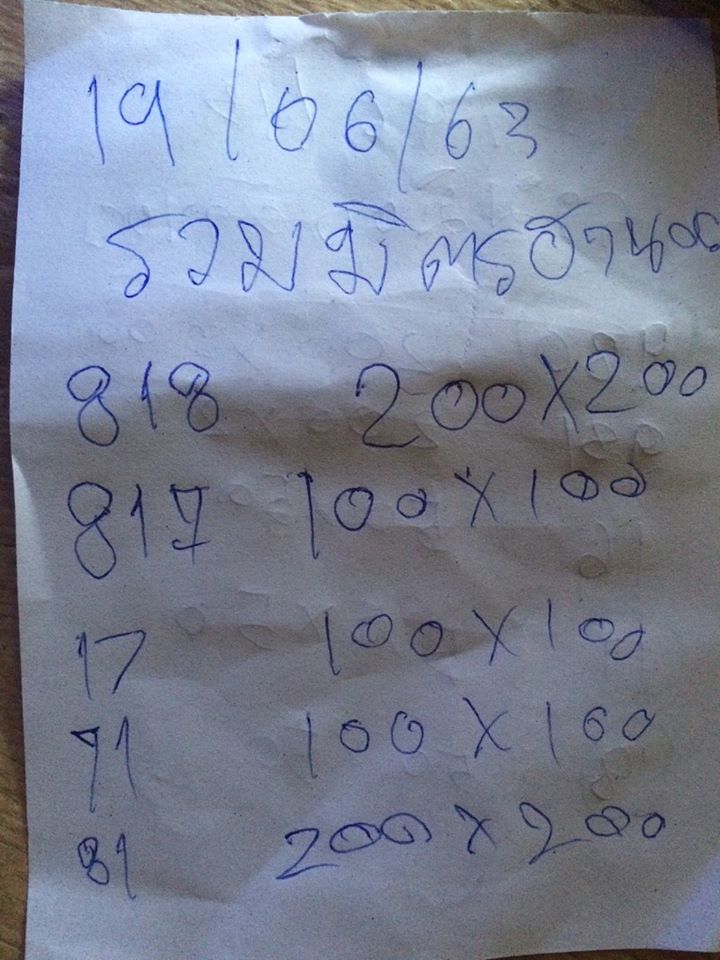 19/06/63
รวมมิตรฮานอย
818 200X200
817 100X100
17 100X100
71 100X100
81 200X200